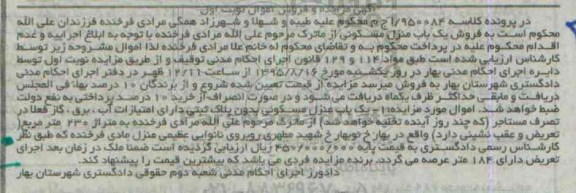 آگهی مزایده و فروش اموال نوبت اول
در پرونده کلاسه ۹۵۰۰۸۴/ا ج م محکوم علیه طیبه و شهلا و شهرزاد همگی مرادی فرخنده فرزندان علی الله
محکوم است به فروش یک باب منزل مسکونی از ماترک مرحوم علی الله مرادی فرخنده با توجه به ابلاغ اجراییه و عدم
اقدام محکوم علیه در پرداخت محکوم به و تقاضای محکوم له خانم علا مرادی فرخنده لذا اموال مشروحه زیر توسط
کارشناس ارزیابی شده است طبق مواد ۱۱۴ و ۱۲۹ قانون اجرای احکام مدنی توقیف و از طریق مزایده نوبت اول توسط
دایره اجرای احکام مدنی بهار در روز یکشنبه مورخ ۱۳۹۵/۸/۱۶ از ساعت ۱۲/۱۱ ظهر در دفتر اجرای احکام مدنی
دادگستری شهرستان بهار به فروش میرسد مزایده از قیمت تعیین شده شروع و از برندگان ۱۰ درصد بها فی المجلس
دریافت و مابقی حداکثر ظرف یکماه دریافت می شود و در صورت انصراف از خرید ۱۰ درصد پرداختی به نفع دولت
ضبط خواهد شد. اموال مورد مزایده: ۱- یک باب منزل مسکونی بدون پلاک ثبتی دارای امتیازات آب، برق، گاز فعلا در
تصرف مستاجر (که چند روز آینده تخلیه خواهد شد) از ماترک مرحوم علی الله مرادی فرخنده به متراژ ۲۴۰ متر مربع (
تعریض و عقب نشینی دارد) واقع در بهار خ نوبهار خ شهید مطهری روبروی نانوایی عظیمی منزل مادی فرخنده که طبق نظر
کارشناس رسمی دادگستری به قیمت پایه ۴۵۰/۰۰۰/۰۰۰ ریال ارزیابی گردیده است ضمنا ملک در زمان بعد اجرای
تعریض دارای ۱۸۴ متر عرصه می گردد. برنده مزایده فردی می باشد که بیشترین قیمت را پیشنهاد کند.
دادورز اجرای احکام مدنی شعبه دوم حقوقی دادگستری شهرستان بهار